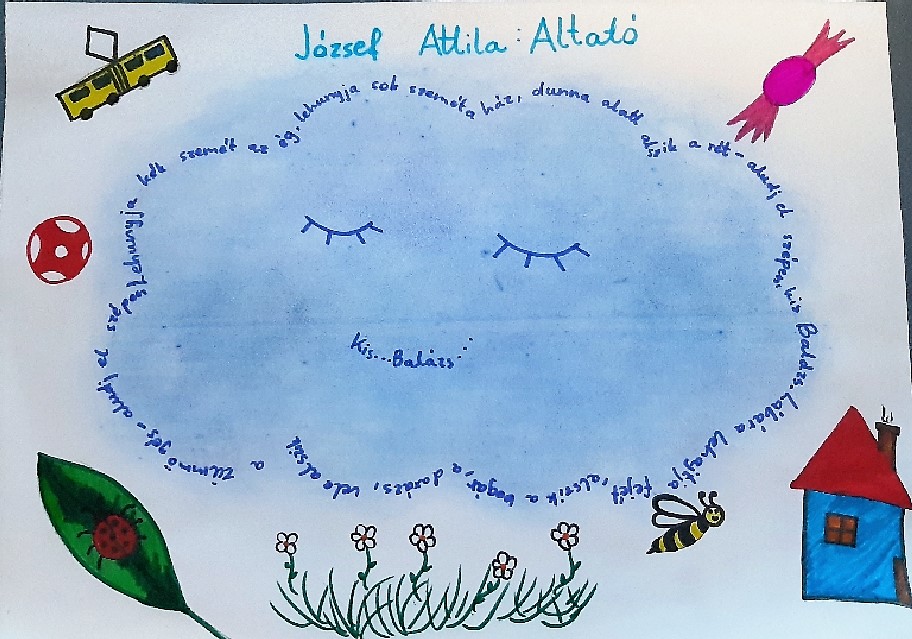 József Attila: Altató
Lehunyja kék szemét az ég, lehunyja sok szemét a ház, dunna alatt alszik a rét - aludj el szépen, kis Balázs. Lábára lehajtja fejét, alszik a bogár, a darázs, vele alszik a zümmögés - aludj el szépen
Kis...Balázs...